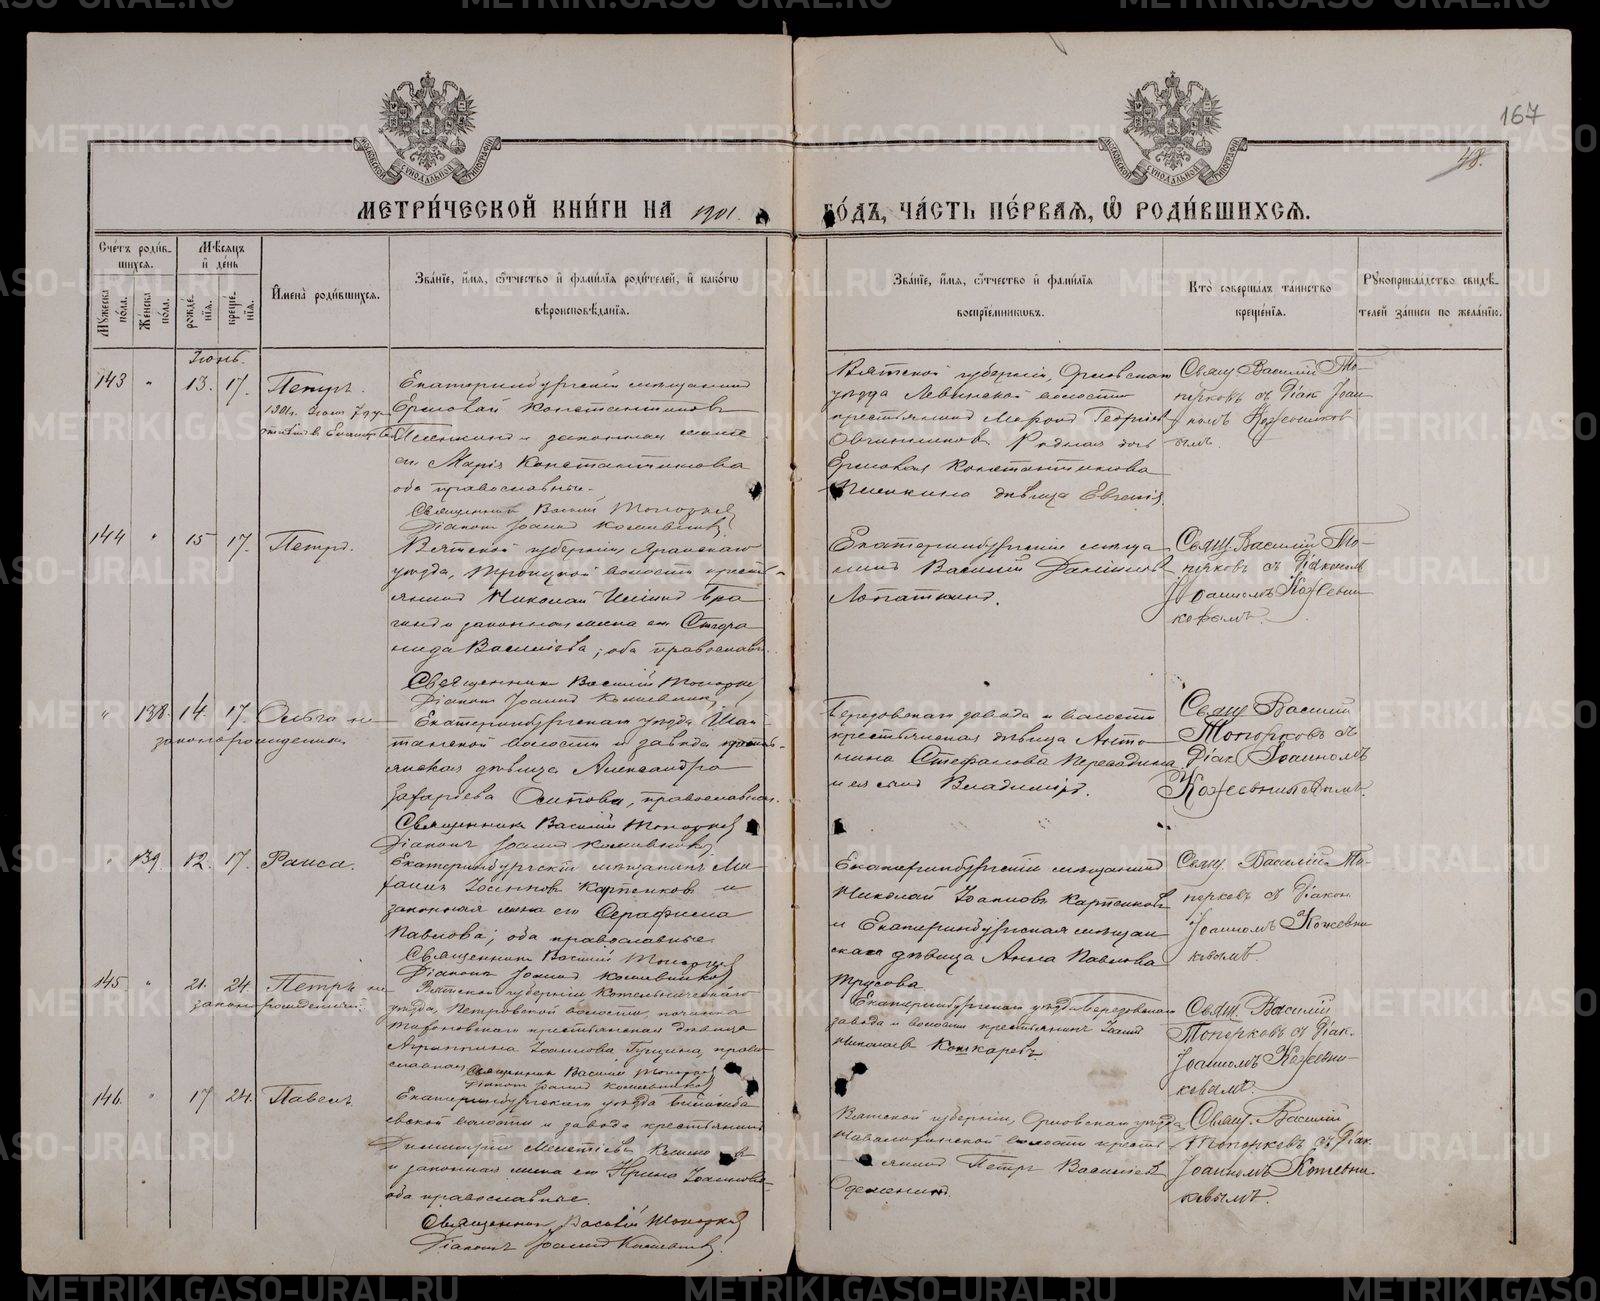 167
48.
МЕТРИ́ЧЕСКОЙ КНИ́ГИ НА 1901.
ГО́ДЪ, ЧА́СТЬ ПЕ́РВАѦ, Ѿ РОДИ́ВШИХСѦ.
Сче́тъ роди́вшихсѧ.
Мꙋ́жеска по́ла.
Же́нска по́ла.
Мѣ́сѧцъ и҆ де́нь
рожде́нїѧ.
креще́нїѧ.
И҆мена̀ роди́вшихсѧ.
Зва́нїе, и҆́мѧ, ѻ҆́тчество и҆ фамꙋ́лїѧ роди́телей, и҆ како́гѡ
вѣроисповѣ́данїѧ.
Зва́нїе, и҆́мѧ, ѻ҆́тчество и҆ фами́лїѧ
воспрїе́мникѡвъ.
Кто̀ соверша́лъ та́инство
креще́нїѧ.
Рꙋкоприкла́дство свидѣ́телей за́писи по жела́нїю.
Іюнь.
143 " 13. 17. Петръ.
Екатеринбургскій мѣщанинъ
Константиновъ
и законная жена
его Марія Константинова
оба православные.
Священникъ Василій Топорковъ
Діаконъ Іоаннъ Кожевниковъ
Вятской губерніи, Орловскаго
уѣзда Левинской волости
крестьянинъ
Овчинниковъ. Родная дочь
Константинова
дѣвица Евгенія.
Свящ Василій То-
порковъ съ Діак Іоан-
номъ Кожевников
ымъ.
144 " 15 17. Петръ.
Вятской губерніи Яранскаго
уѣзда, Троицкой волости кресть-
янинъ Николай
и законная жена его Степа-
нида Василіева; оба православн.
Священникъ Василій Топорковъ
Діаконъ Іоаннъ Кожевниковъ
Екатеринбургскій мѣща-
нинъ Василій Даніиловъ
Лопаткинъ.
Свящ. Василій То-
порковъ съ Діакономъ
Іоанномъ Кожевни-
ковымъ.
" 138. 14. 17. Ольга не-
законорожденная
Екатеринбургскаго уѣзда Шай-
танской волости и завода кресть-
янская дѣвица Александра
Захаріева Осипова, православная.
Священникъ Василій Топорковъ
Діаконъ Іоаннъ Кожевниковъ
Березовскаго завода и волости
крестьянская дѣвица Анто-
нина Стефанова
и ея сынъ Владиміръ.
Свящ Василій
Топорковъ съ
Діак Іоанномъ
Кожевниковымъ.
" 139. 12. 17. Раиса.
Екатеринбургскій мѣщанинъ Ми-
хаилъ Іоанновъ Карпенковъ и
законная жена его Серафима
Павлова; оба православные
Священникъ Василій Топорковъ
Діаконъ Іоаннъ Кожевниковъ
Екатеринбургскій мѣщанинъ
Николай Іоанновъ Карпенковъ
и Екатеринбургская мѣщан-
ская дѣвица Анна Павлова
Трусова.
Свящ. Василій То-
порковъ съ Діакон.
Іоанномъ Кожевни-
ковымъ
145. " 21. 24. Петръ не-
законорожденный.
Вятской губерніи Котельническаго
уѣзда, Петровской волости, починка
крестьянская дѣвица
Агриппина Іоаннова Гущина, право-
славная
Священникъ Василій Топорковъ
Діаконъ Іоаннъ Кожевниковъ
Екатеринбургскаго уѣзда Березовскаго
завода и волости крестьянинъ Іоаннъ
Николаевъ Кошкаревъ
Свящ. Василій
Топорковъ съ Діак.
Іоанномъ Кожевни-
ковымъ.
146. " 17 24. Павелъ.
Екатеринбургскаго уѣзда Билимба-
евской волости и завода крестьянинъ
Димитрій Мелетіевъ
и законная жена его Ирина Іоаннова
оба православные.
Священникъ Василій Топорковъ
Діаконъ Іоаннъ Кожевниковъ
Вятской губерніи, Орловскаго уѣзда
волости кресть-
янинъ Петръ Василіевъ
Свящ. Василій
Топорковъ съ Діак.
Іоанномъ Кожевни-
ковымъ.
METRIKI.GASO-URAL.RU